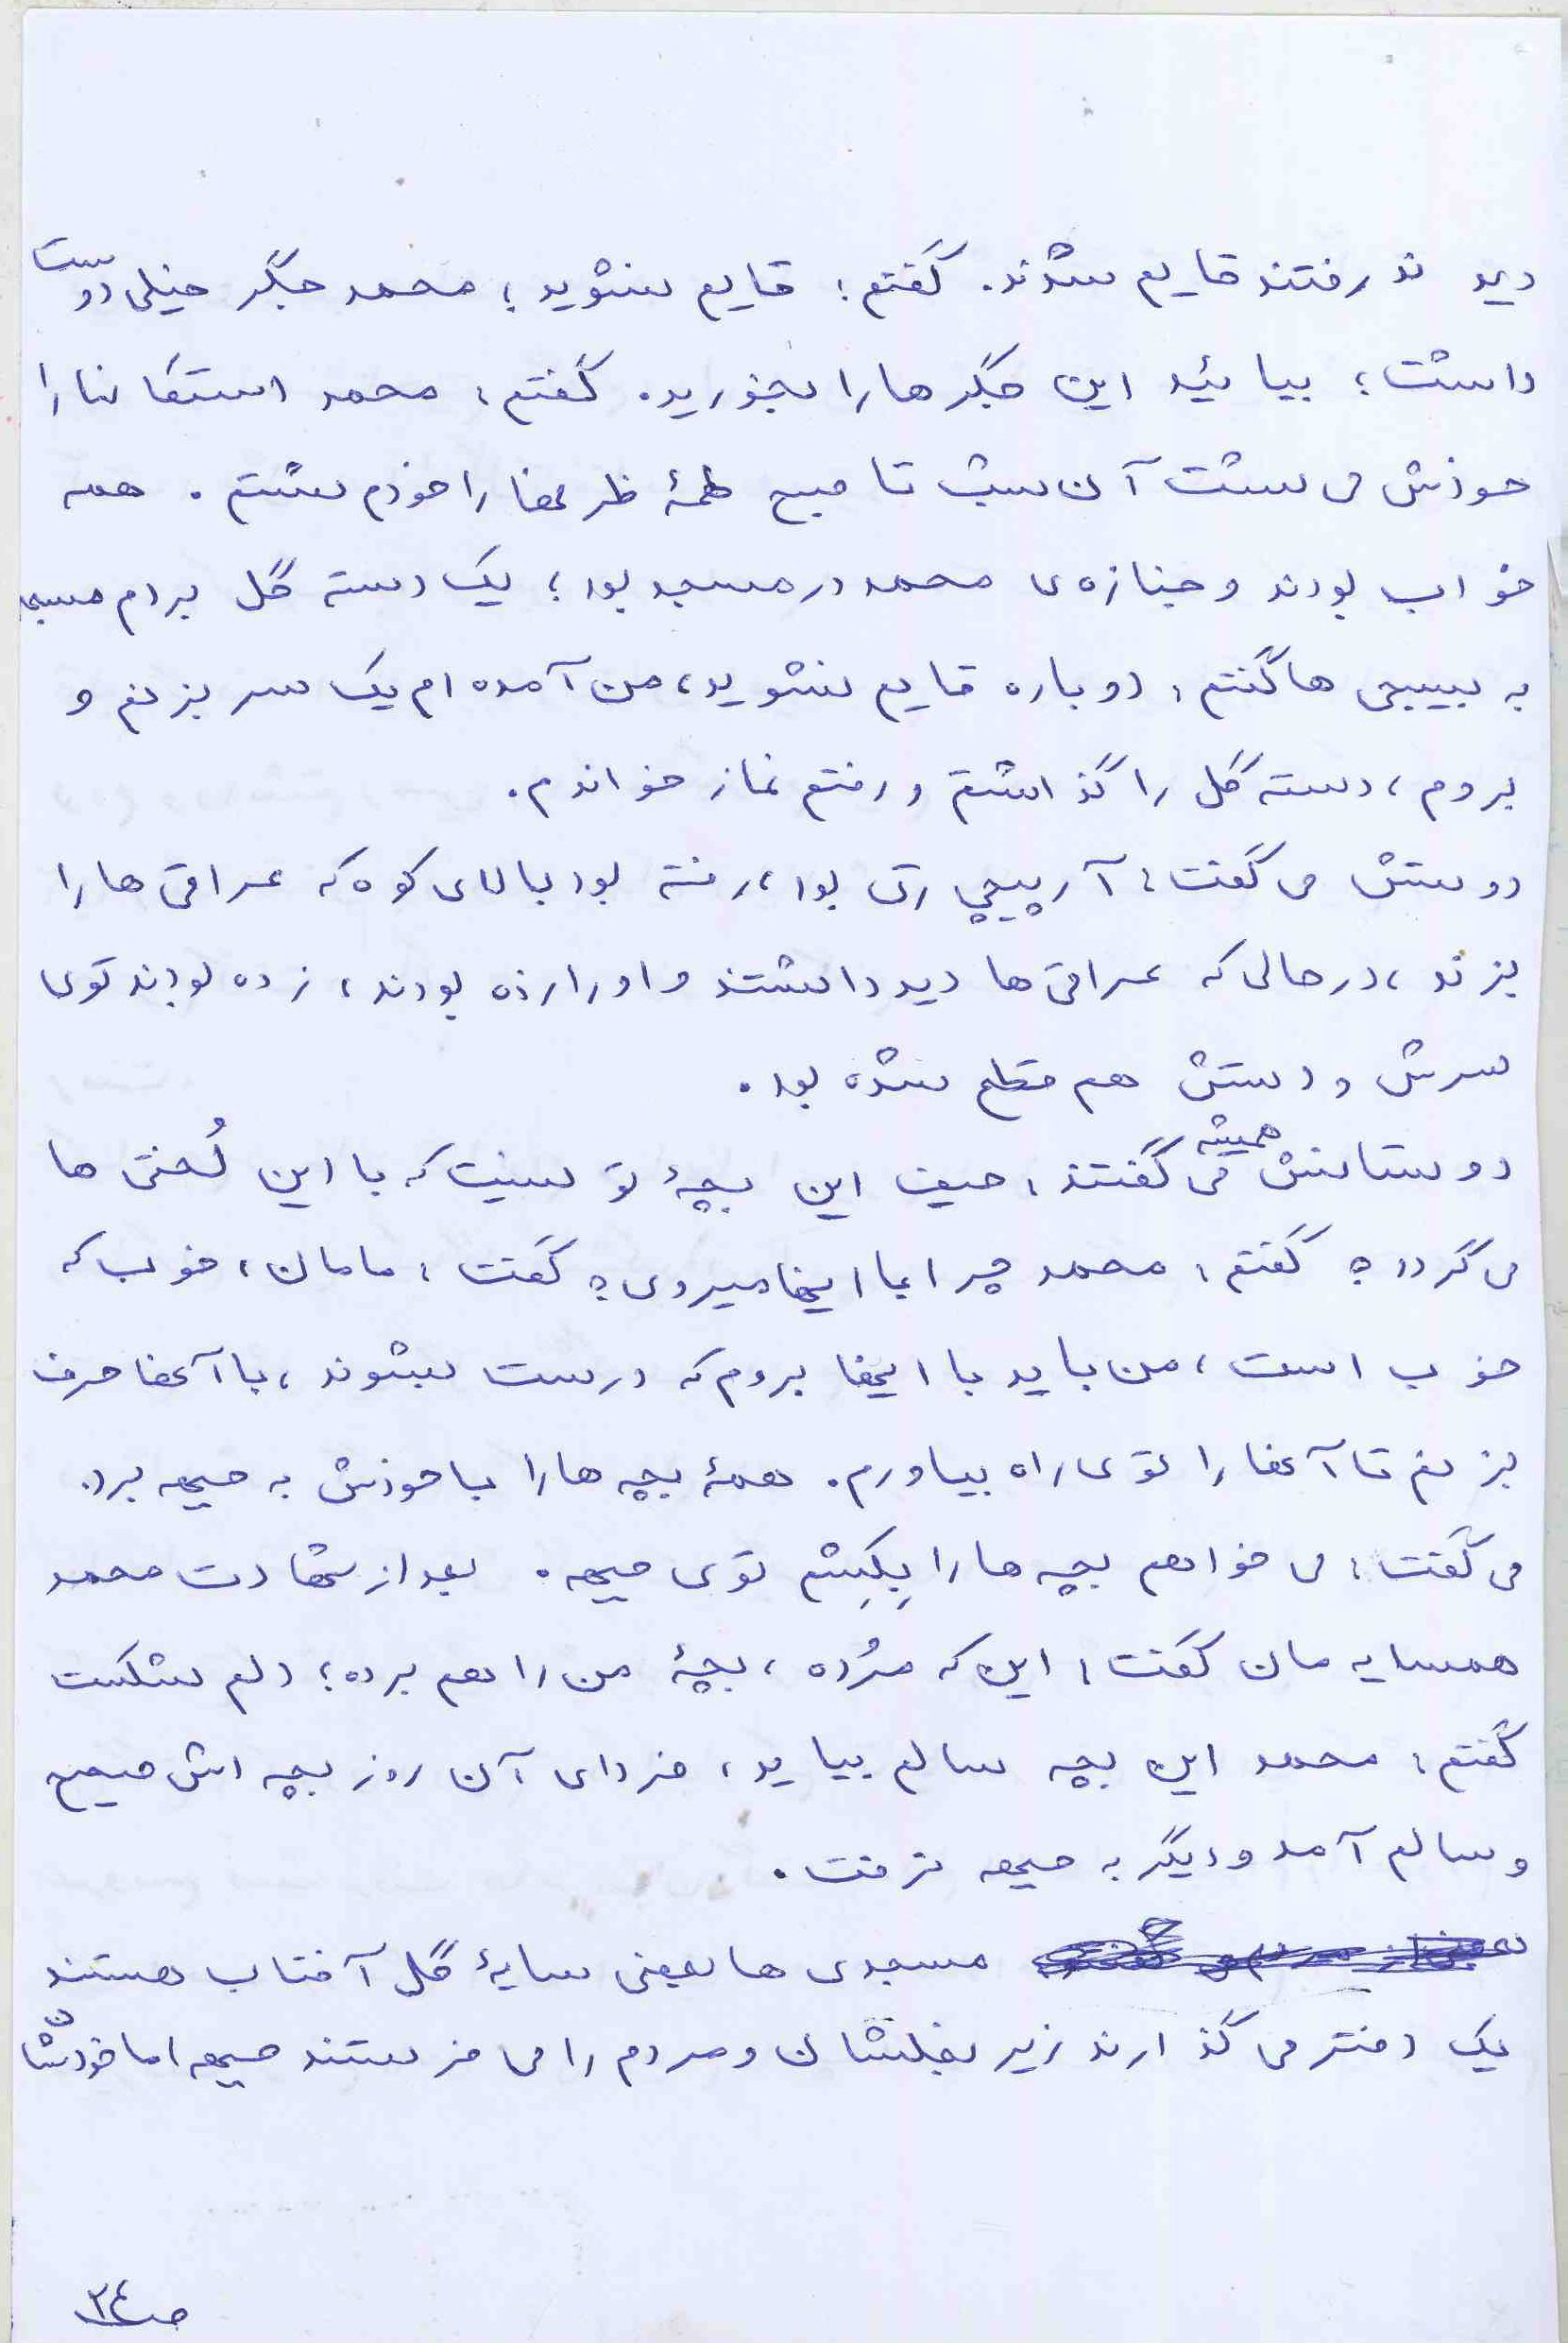 دیدند رفتند قایم شدند. گفتم: قایم نشوید؛ محمد جگر خیلی دوست
داشت؛ بیائید این جگرها را بخورید. گفتم: محمد استکانا را
خودش می شست آن شب تا صبح همهٔ ظرفها را خودم شستم. همه
خواب بودند و جنازه‌ی محمد در مسجد بود؛ یک دسته گل بردم مسجد
به بسیجی ها گفتم: دوباره قایم نشوید، من آمده ام یک سر بزنم و
بروم، دسته گل را گذاشتم و رفتم نماز خواندم.
دوستش می گفت: آرپیجی زن بود، رفته بود بالای کوه که عراقی ها را
بزند، در حالی که عراقی ها دید داشتند و او را زده بودند، زده بودند توی
سرش و دستش هم قطع شده بود.
دوستانش همیشه می گفتند: حیف این بچهٔ تو نیست که با این لُختی ها
می گردد؟ گفتم: محمد چرا با اینها میروی؟ گفت: مامان، خوب که
خوب است، من باید با اینها بروم که درست بشوند، با آنها حرف
بزنم تا آنها را توی راه بیاورم. همهٔ بچه ها را با خودش به جبهه برد.
می گفت: می خواهم بچه ها را بِکِشم توی جبهه. بعد از شهادت محمد
همسایه مان گفت: این که مُرده، بچهٔ من را هم برده؛ دلم شکست
گفتم: محمد این بچه سالم بیاید، فردای آن روز بچه اش صحیح
و سالم آمد و دیگر به جبهه نرفت.
مسجدی ها بعضی سایهٔ گل آفتاب هستند
یک دفتر می گذارند زیر بغلشان و مردم را می فرستند جبهه اما خودشان
ص ۲۴